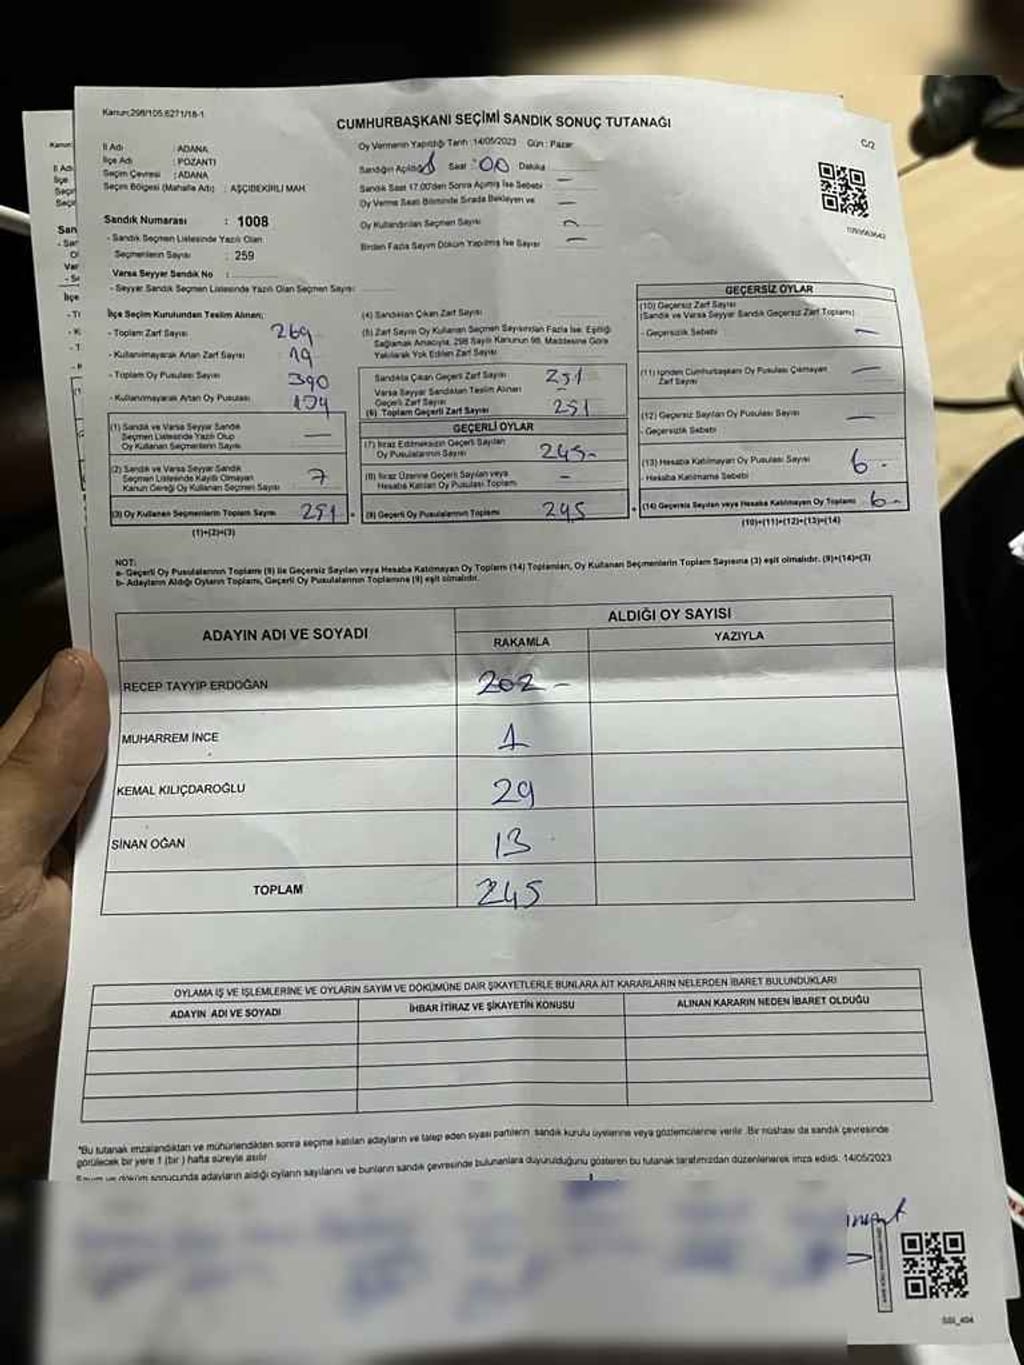 Kanun:298/105;6271/18-1
CUMHURBAŞKANI SEÇİMİ SANDIK SONUÇ TUTANAĞI
C/2
İl Adı : ADANA
İlçe Adı : POZANTI
Seçim Çevresi : ADANA
Seçim Bölgesi (Mahalle Adı) : AŞÇIBEKİRLİ MAH.
Sandık Numarası : 1008
- Sandık Seçmen Listesinde Yazılı Olan
Seçmenlerin Sayısı : 259
Varsa Seyyar Sandık No :
- Seyyar Sandık Seçmen Listesinde Yazılı Olan Seçmen Sayısı :
Oy Vermenin Yapıldığı Tarih : 14/05/2023 Gün : Pazar
Sandığın Açıldığı Saat : 00 Dakika
Sandık Saat 17.00'den Sonra Açılmış İse Sebebi —
Oy Verme Saati Bitiminde Sırada Bekleyen ve —
Oy Kullandırılan Seçmen Sayısı
Birden Fazla Sayım Döküm Yapılmış İse Sayısı —
İlçe Seçim Kurulundan Teslim Alınan;
- Toplam Zarf Sayısı 269
- Kullanılmayarak Artan Zarf Sayısı 19
- Toplam Oy Pusulası Sayısı 390
- Kullanılmayarak Artan Oy Pusulası
(1) Sandık ve Varsa Seyyar Sandık
Seçmen Listesinde Yazılı Olup
Oy Kullanan Seçmenlerin Sayısı —
(2) Sandık ve Varsa Seyyar Sandık
Seçmen Listesinde Kayıtlı Olmayan
Kanun Gereği Oy Kullanan Seçmen Sayısı 7
(3) Oy Kullanan Seçmenlerin Toplam Sayısı 251
(1)+(2)=(3)
(4) Sandıktan Çıkan Zarf Sayısı
(5) Zarf Sayısı Oy Kullanan Seçmen Sayısından Fazla İse, Eşitliği
Sağlamak Amacıyla, 298 Sayılı Kanunun 98. Maddesine Göre
Yakılarak Yok Edilen Zarf Sayısı
Sandıkta Çıkan Geçerli Zarf Sayısı 251
Varsa Seyyar Sandıktan Teslim Alınan
Geçerli Zarf Sayısı –
(6) Toplam Geçerli Zarf Sayısı 251
GEÇERLİ OYLAR
(7) İtiraz Edilmeksizin Geçerli Sayılan
Oy Pusulalarının Sayısı 245-
(8) İtiraz Üzerine Geçerli Sayılan veya
Hesaba Katılan Oy Pusulası Toplamı –
(9) Geçerli Oy Pusulalarının Toplamı 245
GEÇERSİZ OYLAR
(10) Geçersiz Zarf Sayısı
(Sandık ve Varsa Seyyar Sandık Geçersiz Zarf Toplamı)
- Geçersizlik Sebebi : —
(11) İçinden Cumhurbaşkanı Oy Pusulası Çıkmayan
Zarf Sayısı —
(12) Geçersiz Sayılan Oy Pusulası Sayısı —
- Geçersizlik Sebebi :
(13) Hesaba Katılmayan Oy Pusulası Sayısı 6 -
- Hesaba Katılmama Sebebi
(14) Geçersiz Sayılan veya Hesaba Katılmayan Oy Toplamı 6 -
(10)+(11)+(12)+(13)=(14)
NOT:
a- Geçerli Oy Pusulalarının Toplamı (9) ile Geçersiz Sayılan veya Hesaba Katılmayan Oy Toplamı (14) Toplamları, Oy Kullanan Seçmenlerin Toplam Sayısına (3) eşit olmalıdır. (9)+(14)=(3)
b- Adayların Aldığı Oyların Toplamı, Geçerli Oy Pusulalarının Toplamına (9) eşit olmalıdır.
ADAYIN ADI VE SOYADI
ALDIĞI OY SAYISI
RAKAMLA YAZIYLA
RECEP TAYYİP ERDOĞAN 202 -
MUHARREM İNCE 1
KEMAL KILIÇDAROĞLU 29
SİNAN OĞAN 13
TOPLAM 245
OYLAMA İŞ VE İŞLEMLERİNE VE OYLARIN SAYIM VE DÖKÜMÜNE DAİR ŞİKAYETLERLE BUNLARA AİT KARARLARIN NELERDEN İBARET BULUNDUKLARI
ADAYIN ADI VE SOYADI İHBAR İTİRAZ VE ŞİKAYETİN KONUSU ALINAN KARARIN NEDEN İBARET OLDUĞU
*Bu tutanak imzalandıktan ve mühürlendikten sonra seçime katılan adayların ve talep eden siyasi partilerin, sandık kurulu üyelerine veya gözlemcilerine verilir. Bir nüshası da sandık çevresinde
görülecek bir yere 1 (bir) hafta süreyle asılır.
Sayım ve döküm sonucunda adayların aldığı oyların sayılarını ve bunların sandık çevresinde bulunanlara duyurulduğunu gösteren bu tutanak tarafımızdan düzenlenerek imza edildi. 14/05/2023